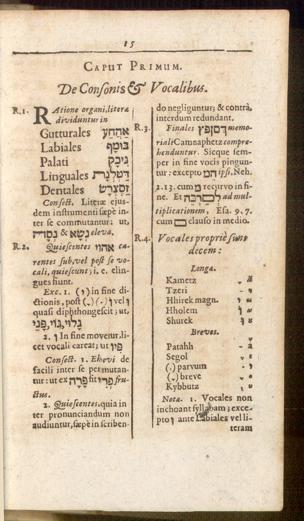 15
CAPUT PRIMUM.
De Consonis & Vocalibus.
R.1. RAtione organi, literæ
dividuntur in
Gutturales אהחע
Labiales בומף
Palati גיכק
Linguales דטלנת
Dentales זסצרש
Consect. Literæ ejus-
dem instrumenti sæpè in-
ter se commutantur: ut,
נשא & נסה eleva.
R.2. Quiescentes אהוי ca-
rentes sub, vel post se vo-
cali, quiescunt; i. e. elin-
gues sunt.
Exc. 1. (י) in fine di-
ctionis, post (ָ) (ַ) vel ו
quasi diphthongescit: ut,
גלוי, גוי, פני
2. ו In fine movetur, li-
cet vocali careat; ut פיו
Consect. 1. Ehevi de
facili inter se permutan-
tur: ut ex פרה fit פרי fru-
ctus.
2. Quiescentes, quia in
ter pronunciandum non
audiuntur, sæpè in scriben-
do negliguntur; & contrà,
interdum redundant.
R.3. Finales דםןףץ memo-
riali Camnaphetz compre-
henduntur. Sicque sem-
per in fine vocis pingun-
tur: excepto הם ipsi, Neh.
2.13. cum ם recurvo in fi-
ne. Et לםרבה ad mul-
tiplicationem, Esa. 9. 7.
cum ם clauso in medio.
R.4. Vocales propriè sunt
decem:
Longa.
Kametz ָ a
Tzeri ֵ e
Hhirek magn. י i
Hholem ֹ o
Shurek ּ u
Breves.
Patahh ַ a
Segol ֶ e
(ִ) parvum ִ i
(ָ) breve ָ o
Kybbutz ֻ u
Nota. 1. Vocales non
inchoant syllabam; exce-
pto ו ante Labiales vel li-
teram